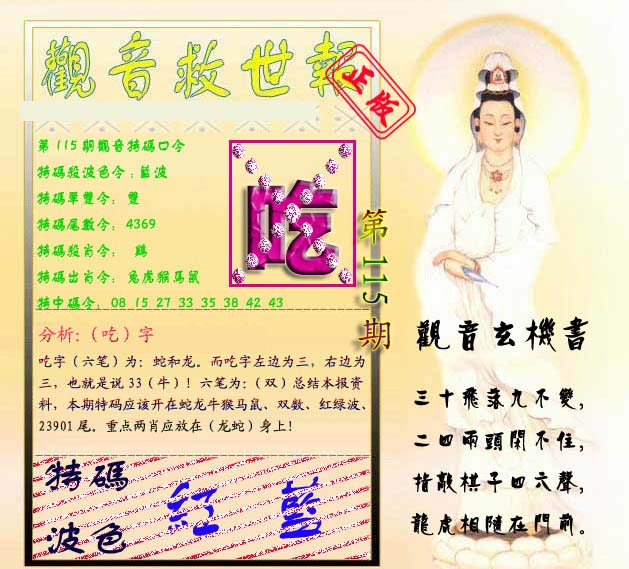 觀音救世報
正版
第115期觀音特碼口令
特碼殺波色令：藍波
特碼單雙令：雙
特碼尾數令：4369
特碼殺肖令：鷄
特碼出肖令：兔虎猴馬鼠
特中碼令：08 15 27 33 35 38 42 43
吃
第115期
分析:（吃）字
吃字（六笔）为：蛇和龙。而吃字左边为三，右边为
三，也就是说33（牛）！六笔为：（双）总结本报资
料，本期特码应该开在蛇龙牛猴马鼠、双数、红绿波、
23901尾。重点两肖应放在（龙蛇）身上！
特碼
波色
紅 藍
觀音玄機書
三十飛落九不變，
二四兩頭閑不住，
指敲棋子四六聲，
龍虎相隨在門前。